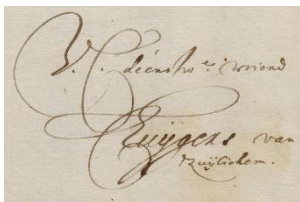 V. E. dienstw.er vriend
Huijgens van
Zuijlichem.